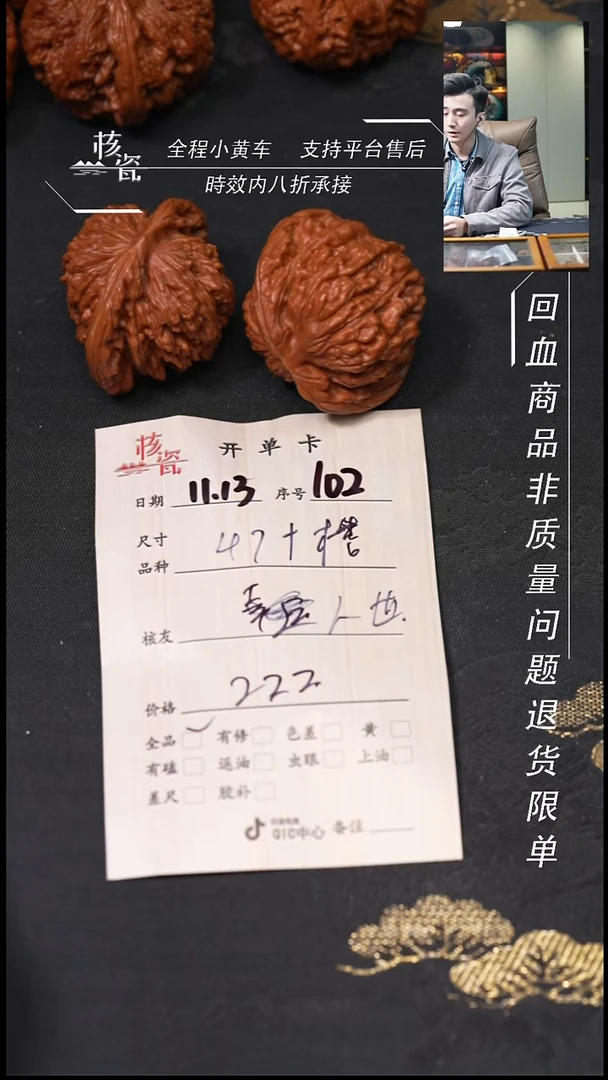 核瓷
全程小黄车 支持平台售后
時效内八折承接
回血商品非质量问题退货限单
核瓷 开单卡
日期 11.13 序号 102
尺寸 47+
品种
核友
价格 222
全品 有修 色差 黄
有磕 返油 虫眼 上油
差尺 胶补
QIC中心 备注